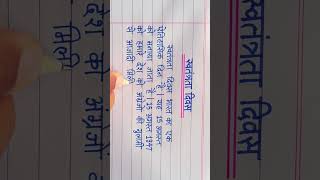 स्वतंत्रता दिवस
स्वतंत्रता दिवस भारत का एक
ऐतिहासिक दिन है। यह 15 अगस्त
को मनाया जाता है। 15 अगस्त 1947
को हमारे देश को अंग्रेजों की गुलामी
से आजादी मिली
स्वतंत्रता दिवस
देश को अंग्रेजों
मिली